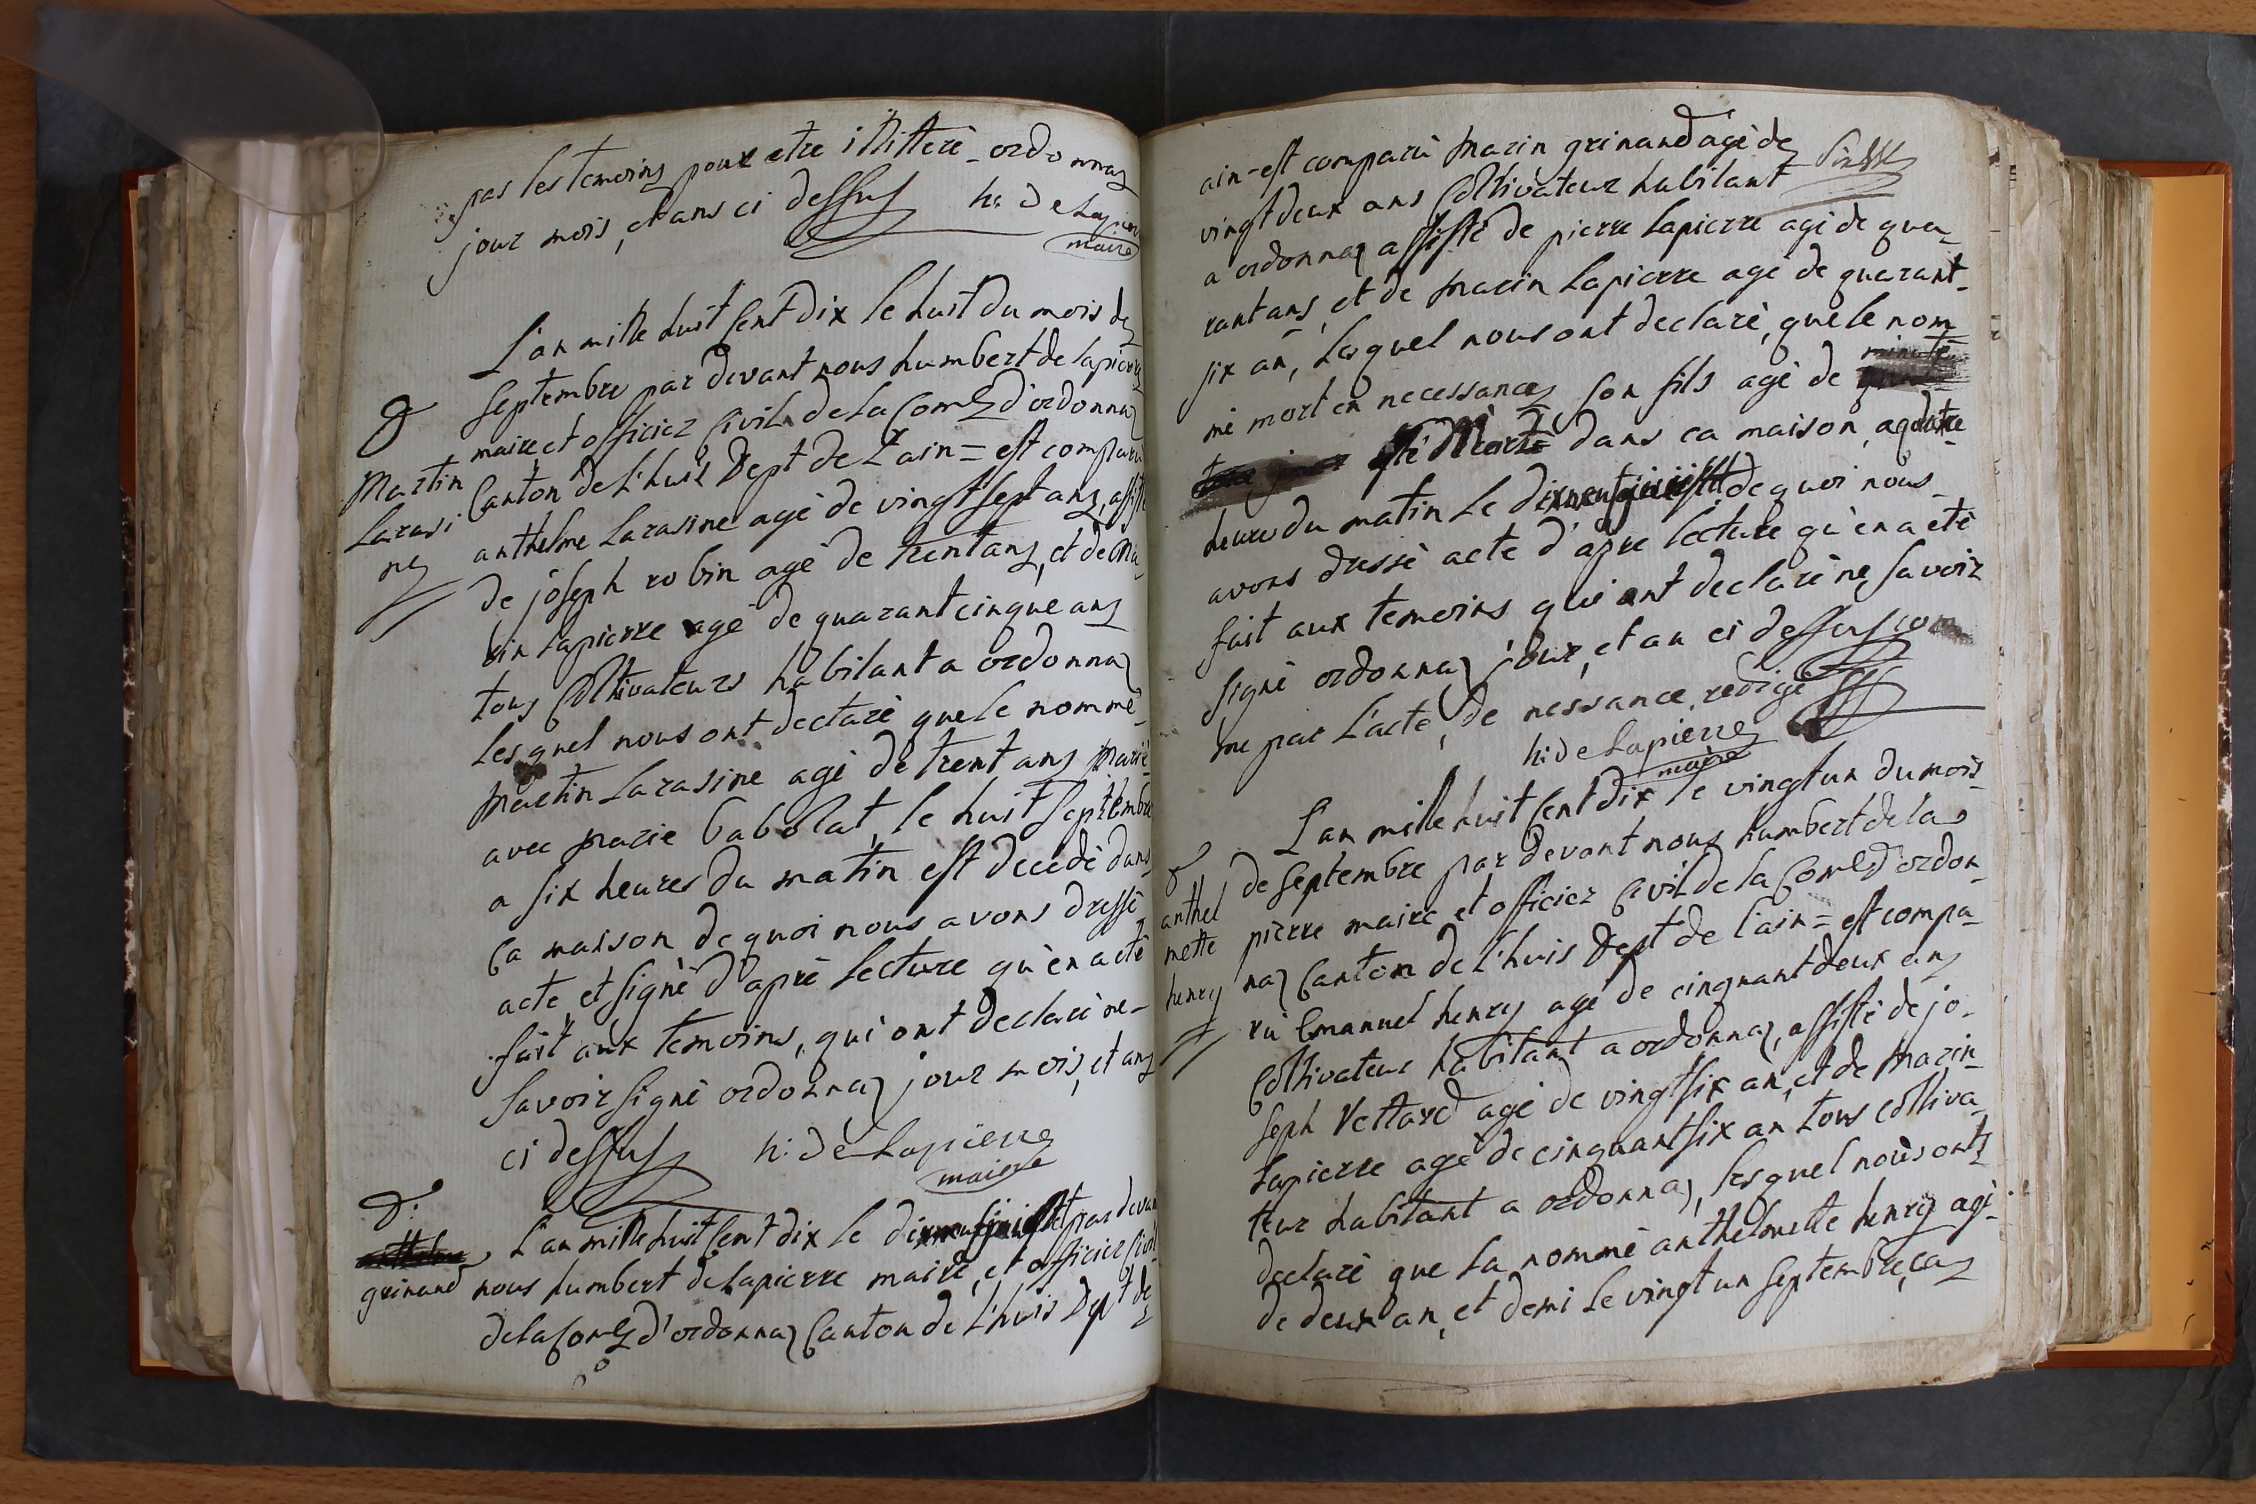 pas les temoins pour etre illitterè ordonnaz
jour mois, et ans ci dessus h: De Lapierre
maire
L'an mille huit Cent Dix le huit Du mois de
Septembre par devant nous humbert de lapierre
D maire et officiez Civil de la Com D'ordonnaz
Martin Canton de L'huis Dept de L'ain = est comparu
Larasi anthelme Larasine agè de vingt Sept ans, assistè
ne de joseph robin agè de trent ans, et de ma
rin Lapierre agè de quarant cinque ans
tous Coltivateurs habitant a ordonnaz
Lesquel nous ont declarè que le nommè
Martin Larasine agè de trent ans Mariè
avec Marie babolat, le huit Septembre
a six heures Du matin est Decedè dans
Ca maison de quoi nous avons Dressè
acte et signè D'aprè Lecture qu'en a etè
fait aux temoins, qui ont declarè ne
Savoir signè ordonnaz jour mois, et ans
ci dessus h: de Lapierre
maire
D:
L'an mille huit Cent dix le dixneuf juillet par devant
grinand nous humbert de lapierre maire, et officiez Civil
de la Com d'ordonnaz Canton de L'huis Dept de
ain = est comparù Marin grinand agè de
vingt deux ans Coltivateur habitant
a ordonnaz assistè de pierre Lapierre agè de qua
rant ans, et de Marin Lapierre agè de quarant
six an, Lesquel nous ont declarè, que le nom
mè mort en necessance son fils agè de minute
etè Morte dans ca maison, a quatre
heures du matin Le dixneuf juillet de quoi nous
avons dressè acte d'apre lecture qu'en a etè
fait aux temoins qui ont declarè ne savoir
signè ordonnaz jour, et an ci dessus com
me par L'acte, de nessance, redigè
h: de Lapierre
maire
L'an mille huit Cent Dix le vingt un du mois
D de Septembre par devant nous humbert de la
anthel pierre maire et officiez Civil de la Com d'ordon
mette naz Canton de L'huis Dept de l'ain = est compa
henry rù Emanuel henry agè de cinquant deux an
Coltivateur habitant a ordonnaz, assistè de jo
seph Vettard agè de vingt six an, et de Marin
Lapierre agè de cinquant six an tous coltiva
teur habitant a ordonnaz, Lesquel nous ont
declarè que la nommè anthelmette henry agè
de deux an, et demi le vingt un Septembre, ca